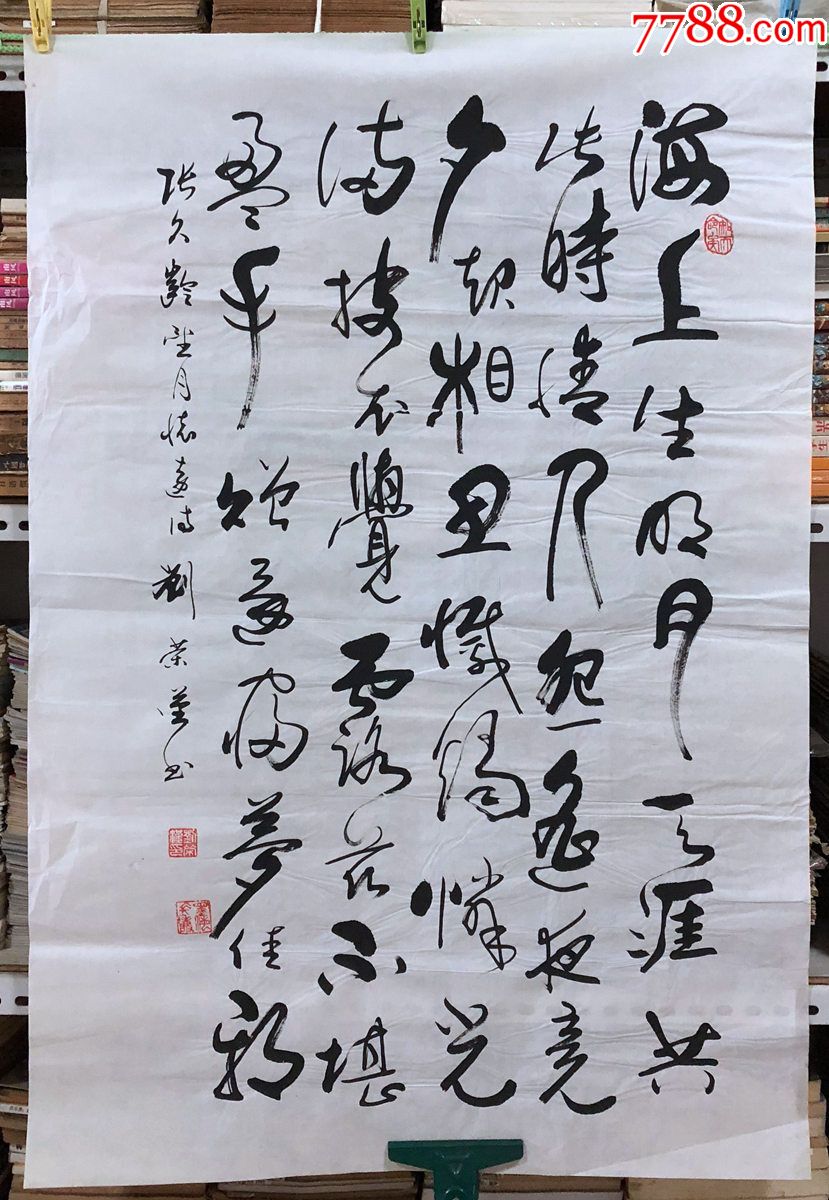 海上生明月天涯共
此時情人怨遙夜竟
夕起相思滅燭憐光
滿披衣覺露滋不堪
盈手贈還寢夢佳期
張久齡望月懷遠詩 劉榮書
7788.com